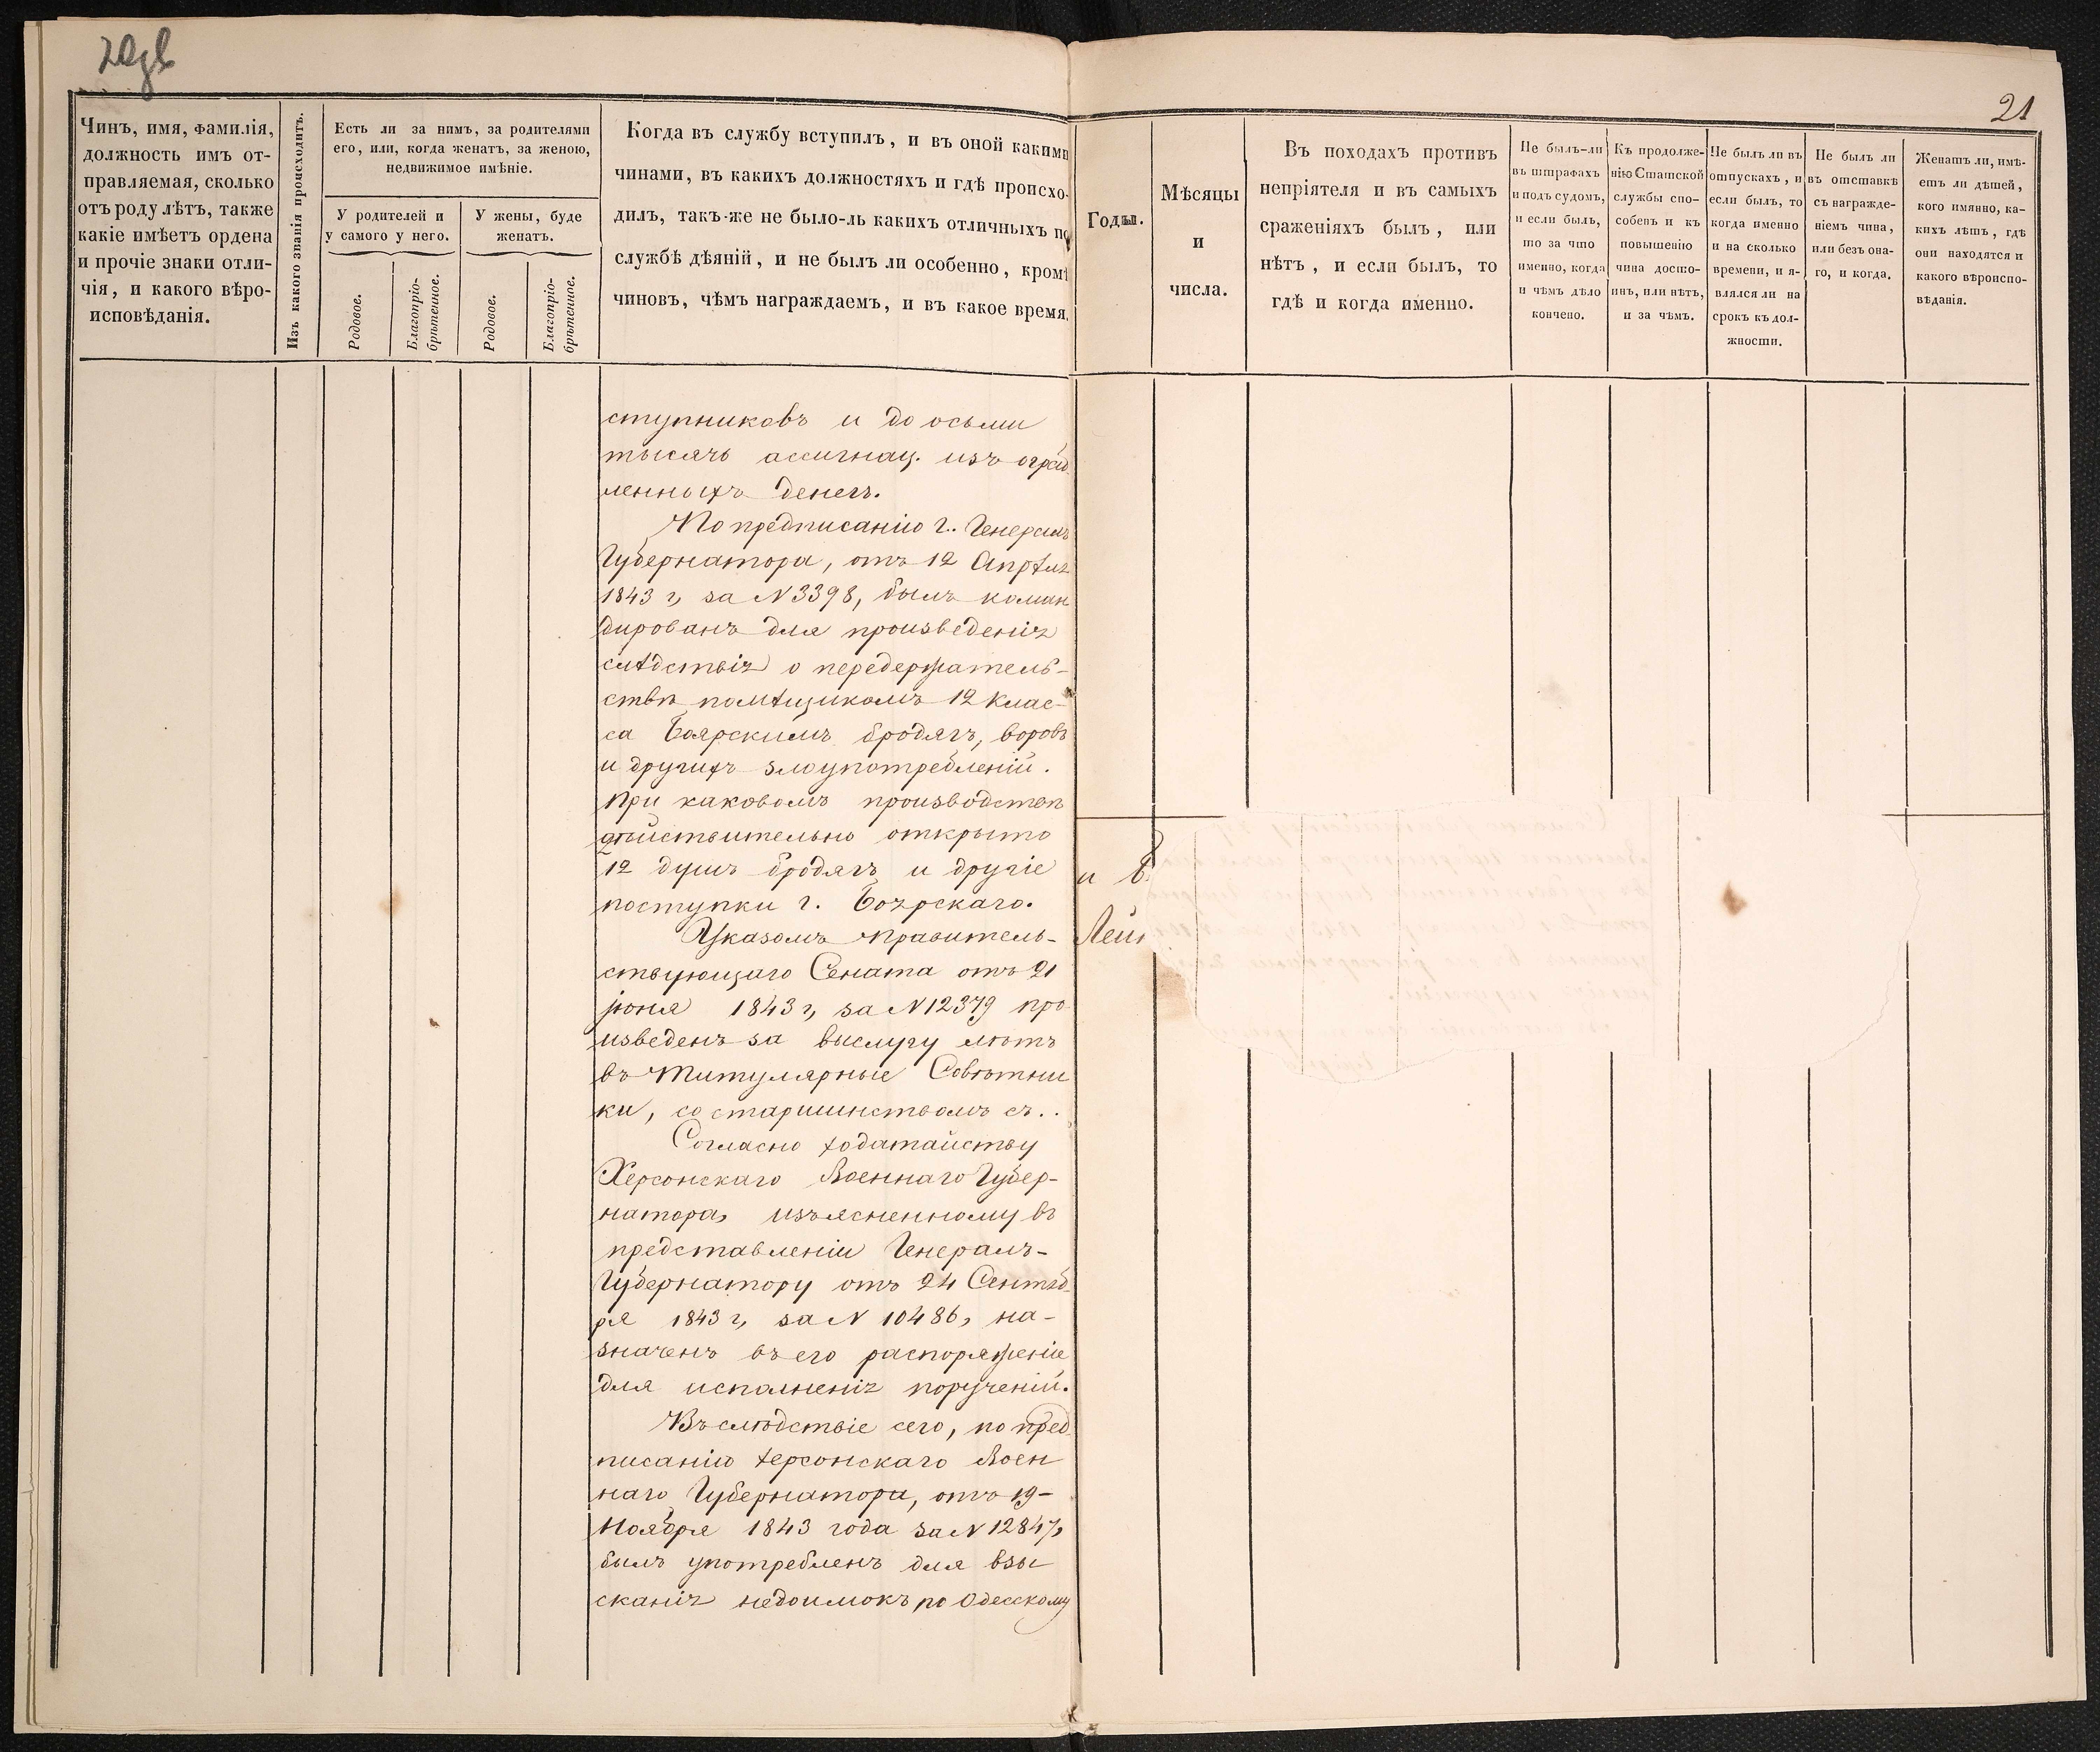 21
Чинъ, имя, фамилія,
должность имъ от-
правляемая, сколько
отъ роду лѣтъ, также
какіе имѣетъ ордена
и прочіе знаки отли-
чія, и какого вѣро-
исповѣданія.
Изъ какого званія происходитъ.
Есть ли за нимъ, за родителями
его, или, когда женатъ, за женою,
недвижимое имѣніе.
У родителей и
у самого у него.
У жены, буде
женатъ.
Родовое.
Благопріо-
брѣтенное.
Родовое.
Благопріо-
брѣтенное.
Когда въ службу вступилъ, и въ оной какими
чинами, въ какихъ должностяхъ и гдѣ происхо-
дилъ, такъ-же не было-ль какихъ отличныхъ по
службѣ дѣяній, и не былъ ли особенно, кромѣ
чиновъ, чѣмъ награждаемъ, и въ какое время.
Годы.
Мѣсяцы
и
числа.
Въ походахъ противъ
непріятеля и въ самыхъ
сраженіяхъ былъ, или
нѣтъ, и если былъ, то
гдѣ и когда именно.
Не былъ-ли
въ штрафахъ
и подъ судомъ,
и если былъ,
то за что
именно, когда
и чѣмъ дѣло
кончено.
Къ продолже-
нію Статской
службы спо-
собенъ и къ
повышенію
чина досто-
инъ, или нѣтъ,
и за чѣмъ.
Не былъ ли въ
отпускахъ, и
если былъ, то
когда именно
и на сколько
времени, и я-
влялся ли на
срокъ къ дол-
жности.
Не былъ ли
въ отставкѣ
съ награжде-
ніемъ чина,
или безъ она-
го, и когда.
Женатъ ли, имѣ-
етъ ли дѣтей,
кого имянно, ка-
кихъ лѣтъ, гдѣ
они находятся и
какого вѣроиспо-
вѣданія.
ступниковъ и до осьми
тысячь ассигнац. изъ ограб
ленныхъ денегъ.
По предписанію г. Генералъ
Губернатора, отъ 12 Апрѣля
1843 г, за N 3398, былъ коман
дированъ для произведенія
слѣдствія о передержатель-
ствѣ помѣщикомъ 12 клас-
са Боярскимъ бродягъ, воровъ
и другихъ злоупотребленій.
При каковомъ производствѣ
дѣйствительно открыто
12 душъ бродягъ и другіе
поступки г. Боярскаго.
Указомъ Правитель-
ствующаго Сената отъ 21
іюня 1843 г, за N 12379 про
изведенъ за выслугу лѣтъ
въ Титулярные Совѣтни
ки, со старшинствомъ съ..
Согласно ходатайству
Херсонскаго Военнаго Губер-
натора, изъясненному въ
представленіи Генералъ-
Губернатору отъ 24 Сентяб
ря 1843 г, за N 10486, на-
значенъ въ его распоряженіе
для исполненія порученій.
Въ слѣдствіе сего, по пред
писанію Херсонскаго Воен
наго Губернатора, отъ 19-
Ноября 1843 года за N 12847,
былъ употребленъ для взы
сканія недоимокъ по Одесскому
и в
Лей